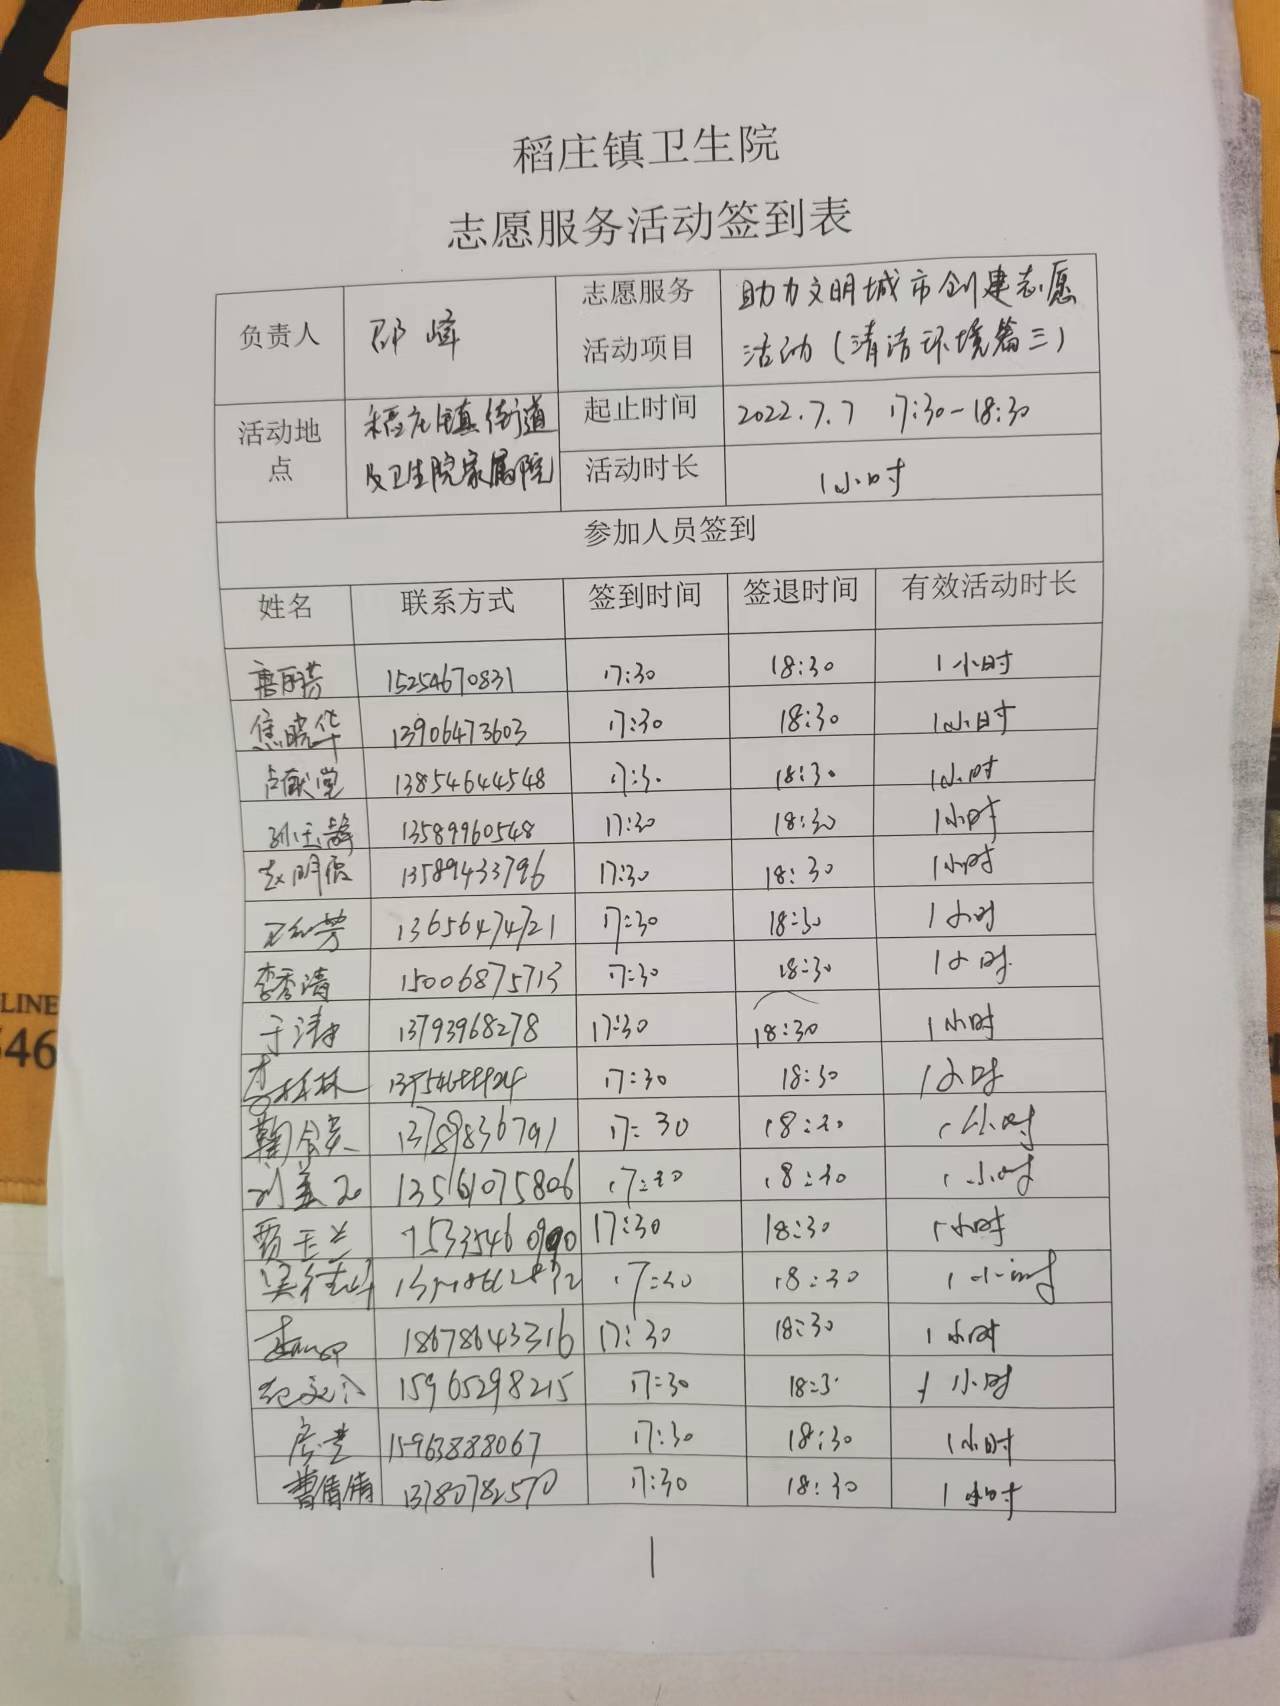 稻庄镇卫生院
志愿服务活动签到表
负责人 邵峰 志愿服务活动项目 助力文明城市创建志愿活动（清洁环境篇三）
活动地点 稻庄镇街道及卫生院家属院 起止时间 2022.7.7 17:30-18:30
活动时长 1小时
参加人员签到
姓名 联系方式 签到时间 签退时间 有效活动时长
唐丽芸 15254670831 17:30 18:30 1小时
焦晓华 13906473603 17:30 18:30 1小时
卢献堂 13854644548 17:30 18:30 1小时
孙玉静 13589960548 17:30 18:30 1小时
赵明霞 13589433796 17:30 18:30 1小时
13656474721 17:30 18:30 1小时
李秀清 15006875713 17:30 18:30 1小时
13793968278 17:30 18:30 1小时
李桂林 17:30 18:30 1小时
鞠 13789836791 17:30 18:30 1小时
刘美 13561075806 17:30 18:30 1小时
贾玉兰 17:30 18:30 1小时
17:30 18:30 1小时
18678643316 17:30 18:30 1小时
纪文 15965298215 17:30 18:3 1小时
15963888067 17:30 18:30 1小时
曹倩倩 13780782570 17:30 18:30 1小时
1
LINE
546